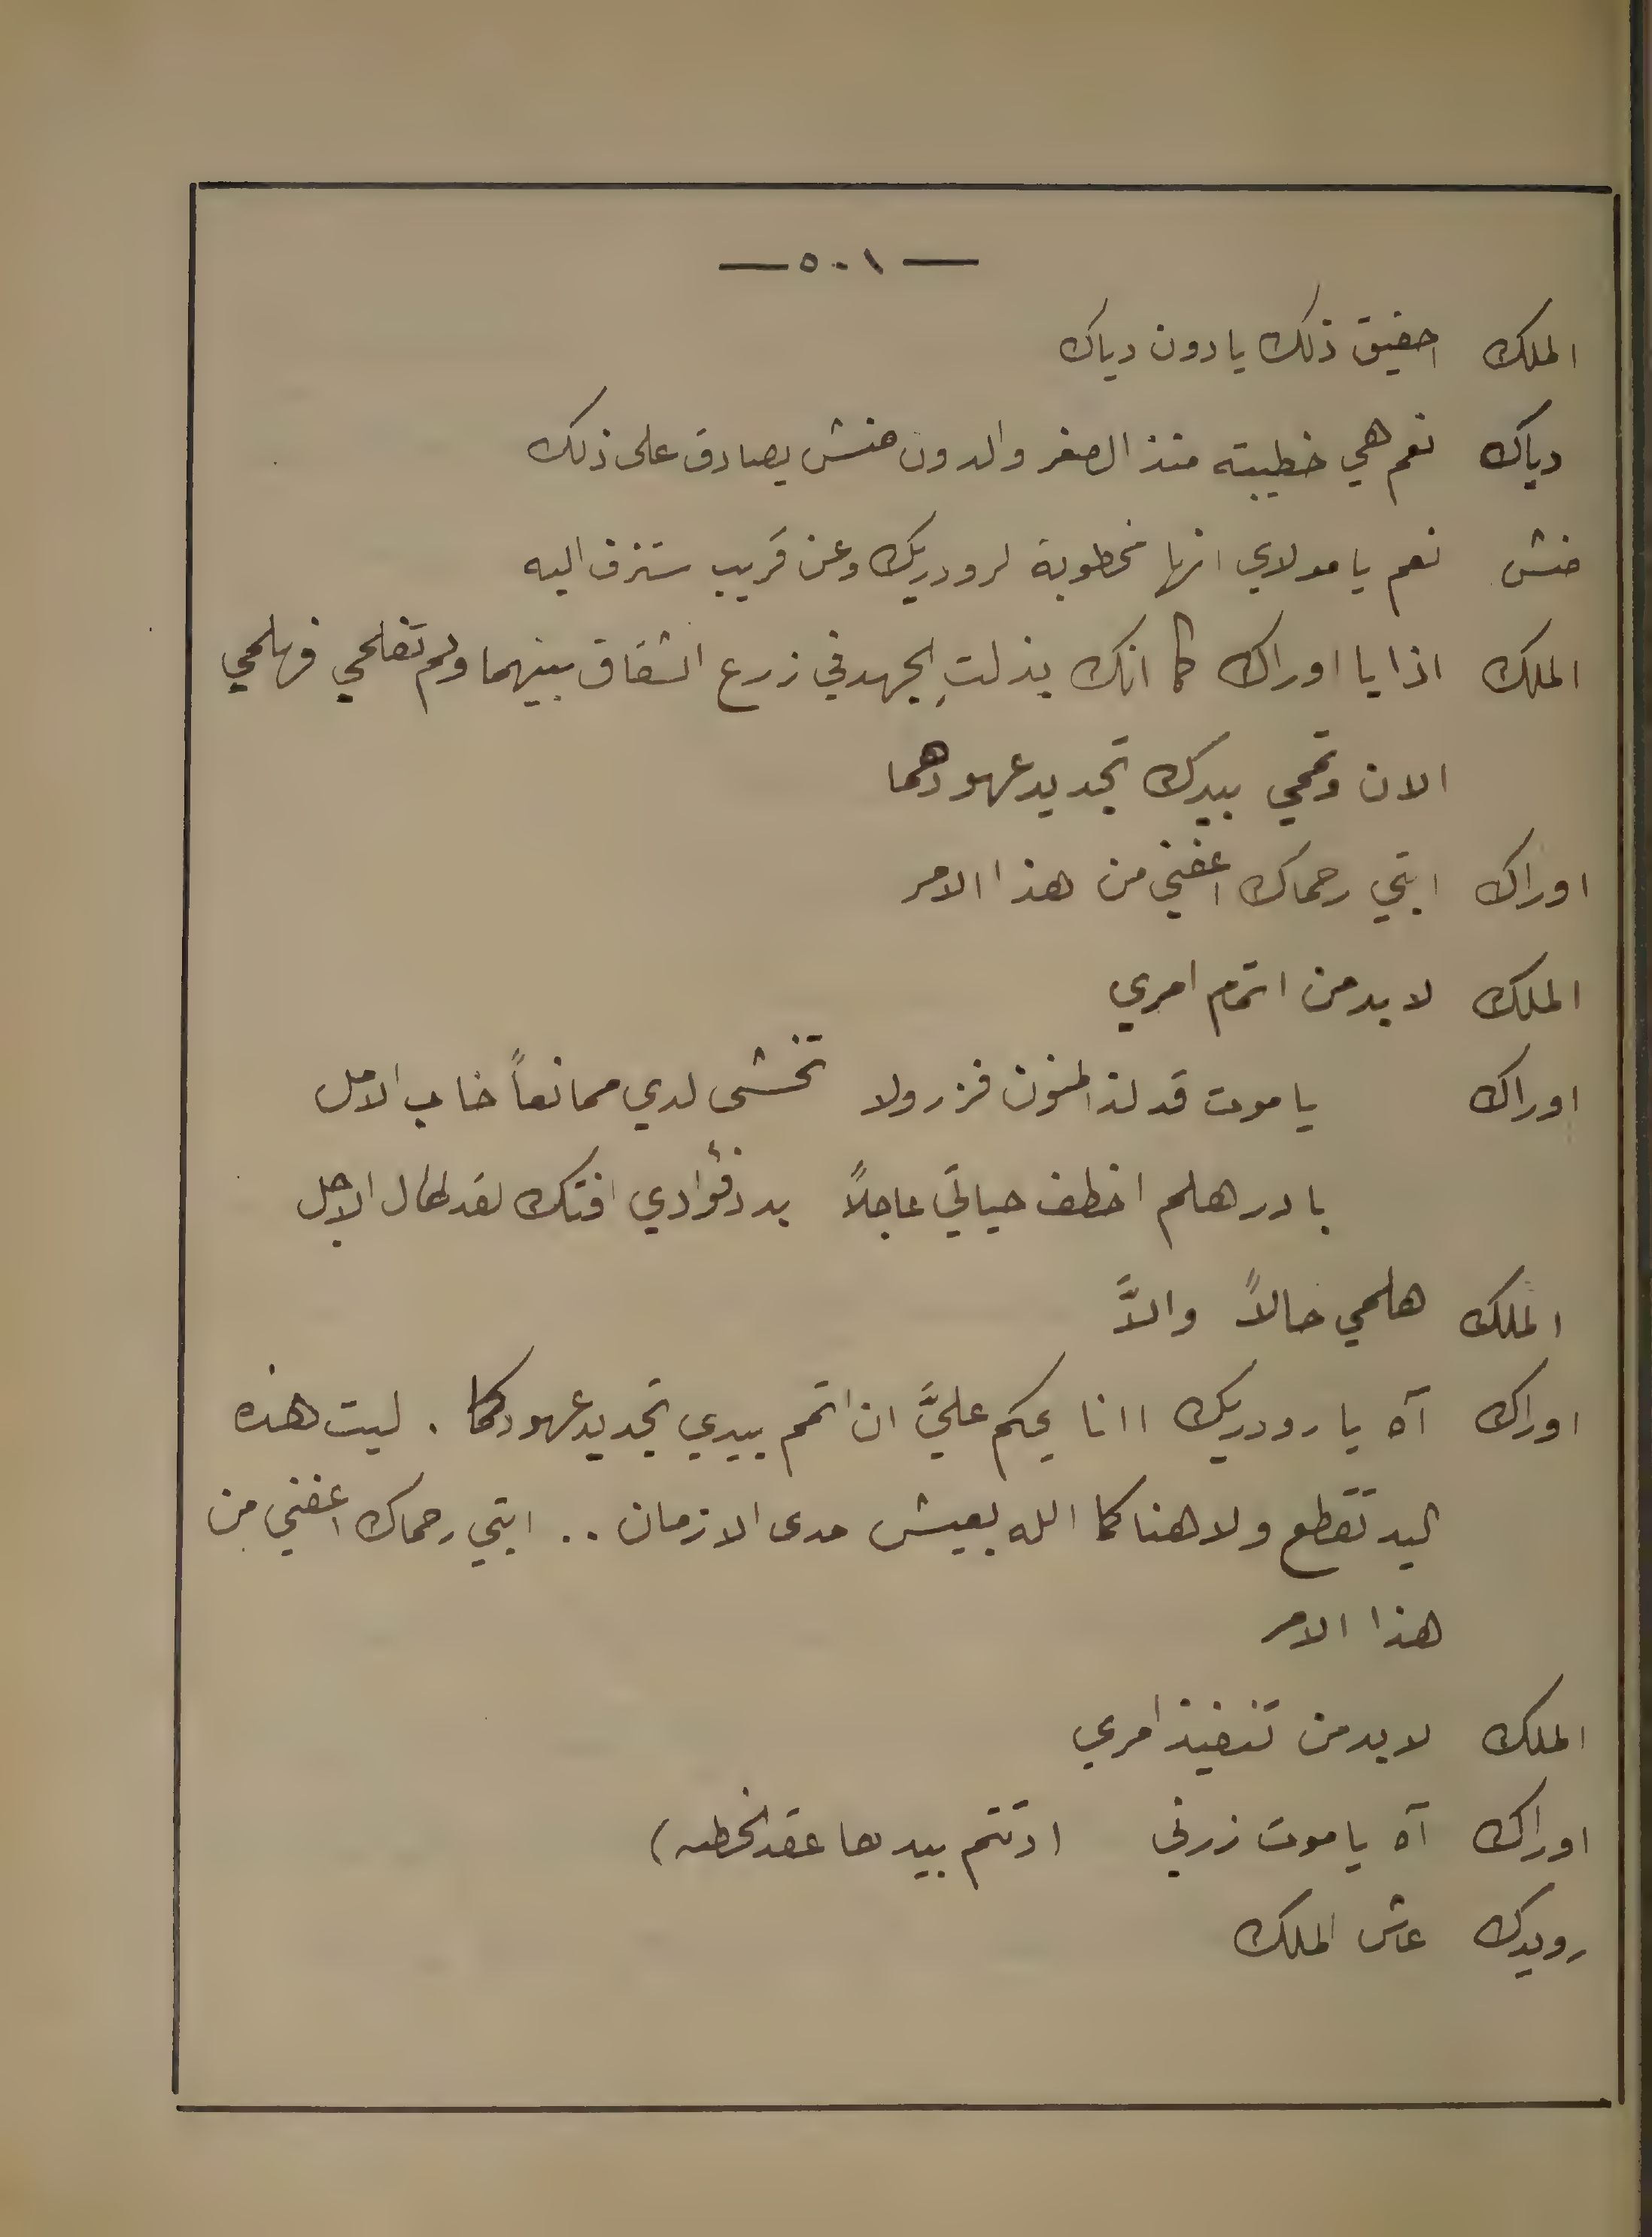 — ٥٠١ —
الملك احقيق ذلك يا دون دياك
دياك نعم هي خطيبته منذ الصغر والدون منش يصادق على ذلك
منش نعم يا مولاي انها مخطوبة لرودريك وعن قريب ستزف اليه
الملك اذا يا اوراك كما انك بذلتِ الجهد في زرع الشقاق بينهما ولم تفلحي فهلمي
الان وتممي بيدك تجديد عهودهما
اوراك ابتي رحماك اعفني من هذا الامر
الملك لا بد من اتمام امري
اوراك يا موت قد لذ المنون فزر ولا تخشى لدي ممانعاً خاب الامل
بادر هلم اخطف حياتي عاجلاً بدد فؤادي افتك لقد طال الاجل
الملك هلمي حالاً والاَّ
اوراك آه يا رودريك اانا يحكم عليَّ ان اتمم بيدي تجديد عهودكما . ليت هذه
اليد تقطع ولا هناكما الله بعيش مدى الازمان .. ابتي رحماك اعفني من
هذا الامر
الملك لا بد من تنفيذ امري
اوراك آه يا موت زرني (وتتم بيدها عقد الخطبه)
رويدك عاش الملك